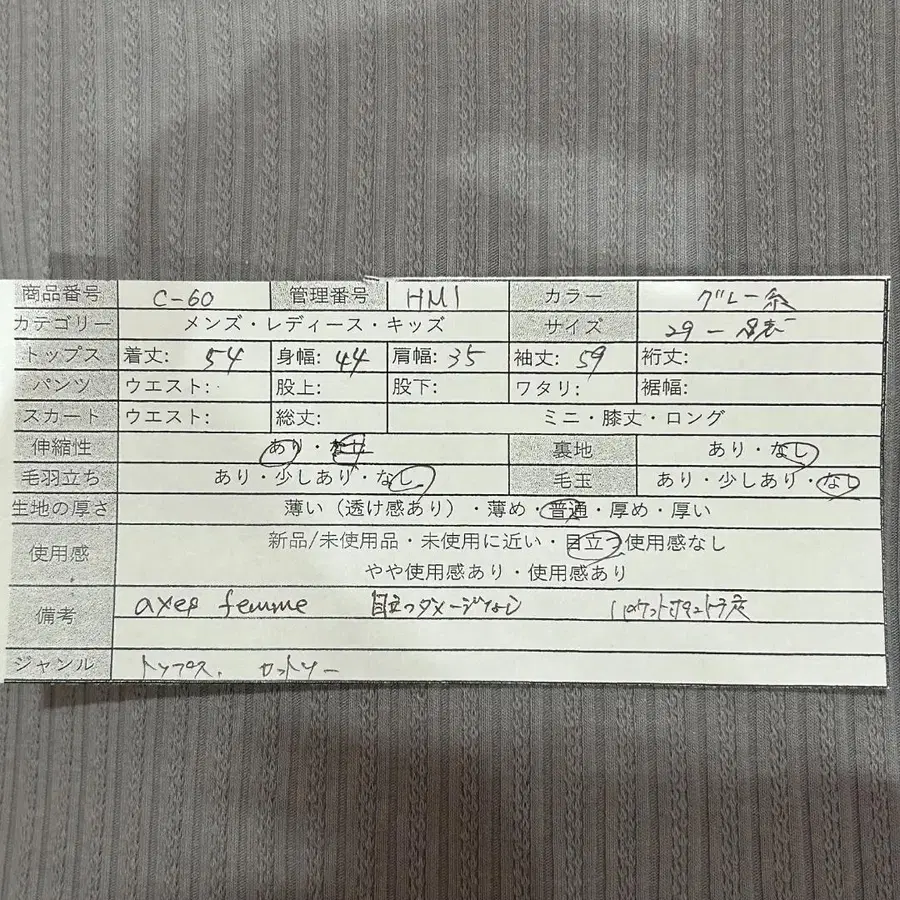 商品番号 C-60 管理番号 HM1 カラー グレー系
カテゴリー メンズ・レディース・キッズ サイズ
トップス 着丈: 54 身幅: 44 肩幅: 35 袖丈: 59 裄丈:
パンツ ウエスト: 股上: 股下: ワタリ: 裾幅:
スカート ウエスト: 総丈: ミニ・膝丈・ロング
伸縮性 あり・なし 裏地 あり・なし
毛羽立ち あり・少しあり・なし 毛玉 あり・少しあり・なし
生地の厚さ 薄い（透け感あり）・薄め・普通・厚め・厚い
使用感 新品/未使用品・未使用に近い・目立つ使用感なし
やや使用感あり・使用感あり
備考 axes femme 目立つダメージなし
ジャンル トップス、カットソー